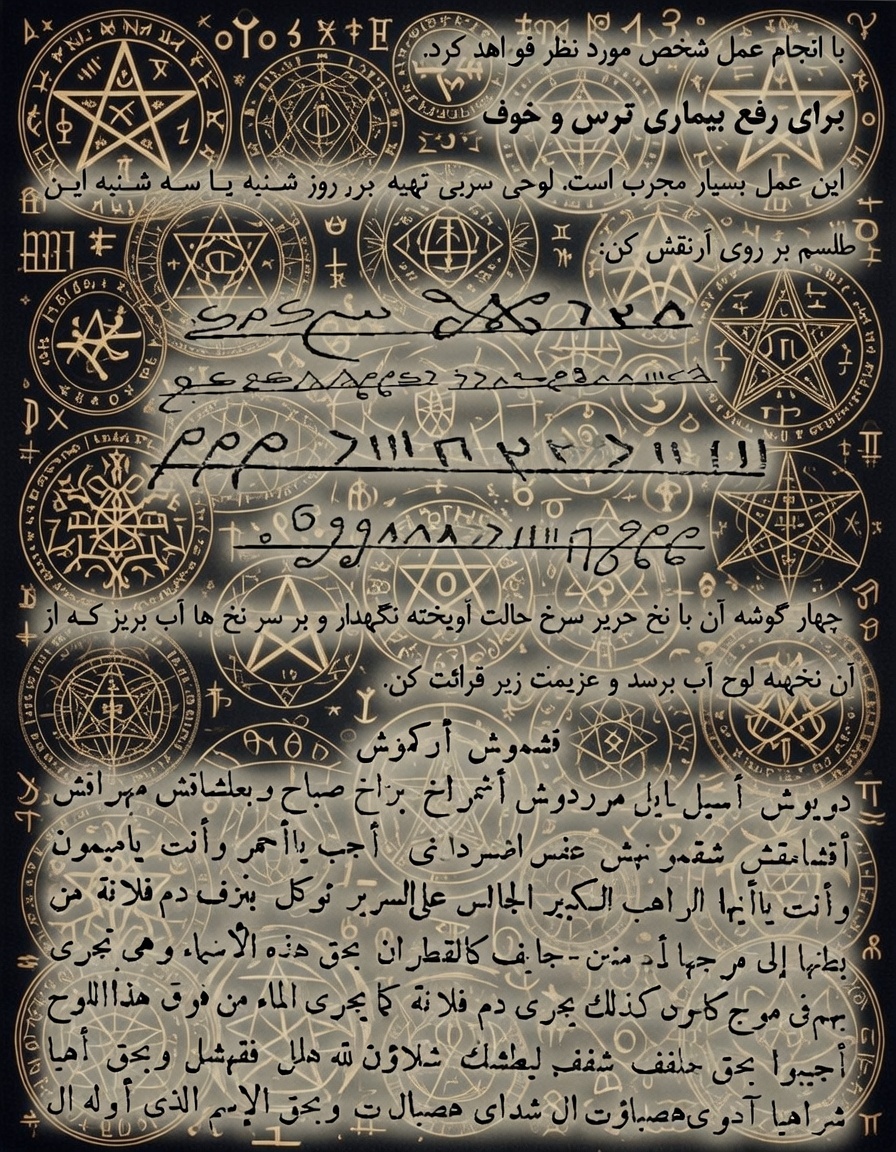 با انجام عمل شخص مورد نظر فو اهد کرد.
برای رفع بیماری ترس و خوف
این عمل بسیار مجرب است. لوحی سربی تهیه برر روز شنبه یا سه شنبه این
طلسم بر روی آرنقش کن:
چهار گوشه آن با نخ حریر سرخ حالت آویخته نگهدار و بر سر نخ ها آب بریز که از
آن نخهبه لوح آب برسد و عزیمت زیر قرائت کن.
قشموش أركموش
دويوش أسيل ايل مرردوش أشمراخ براخ صباح وبعلشاقش مهراقش
أقشامقش شقمونهش عفس اضردا نى أجب ياأحمر وأنت ياميمون
وأنت ياأيها الراهب الكبير الجالس على السرير توكل بنزف دم فلانة من
بطنها إلى فرجها كالقطران بحق هذه الأسماء وهى تجرى
بهم فى موج كالون كذلك يجرى دم فلانة كما يجرى الماء من فوق هذا اللوح
أجيبوا بحق حلفف شفف ليطشلك شلاؤن لله هلل فقهشل وبحق أهيا
شراهيا أدوى هصباؤت ال شداى هصبال ت وبحق الإسم الذى أوله ال